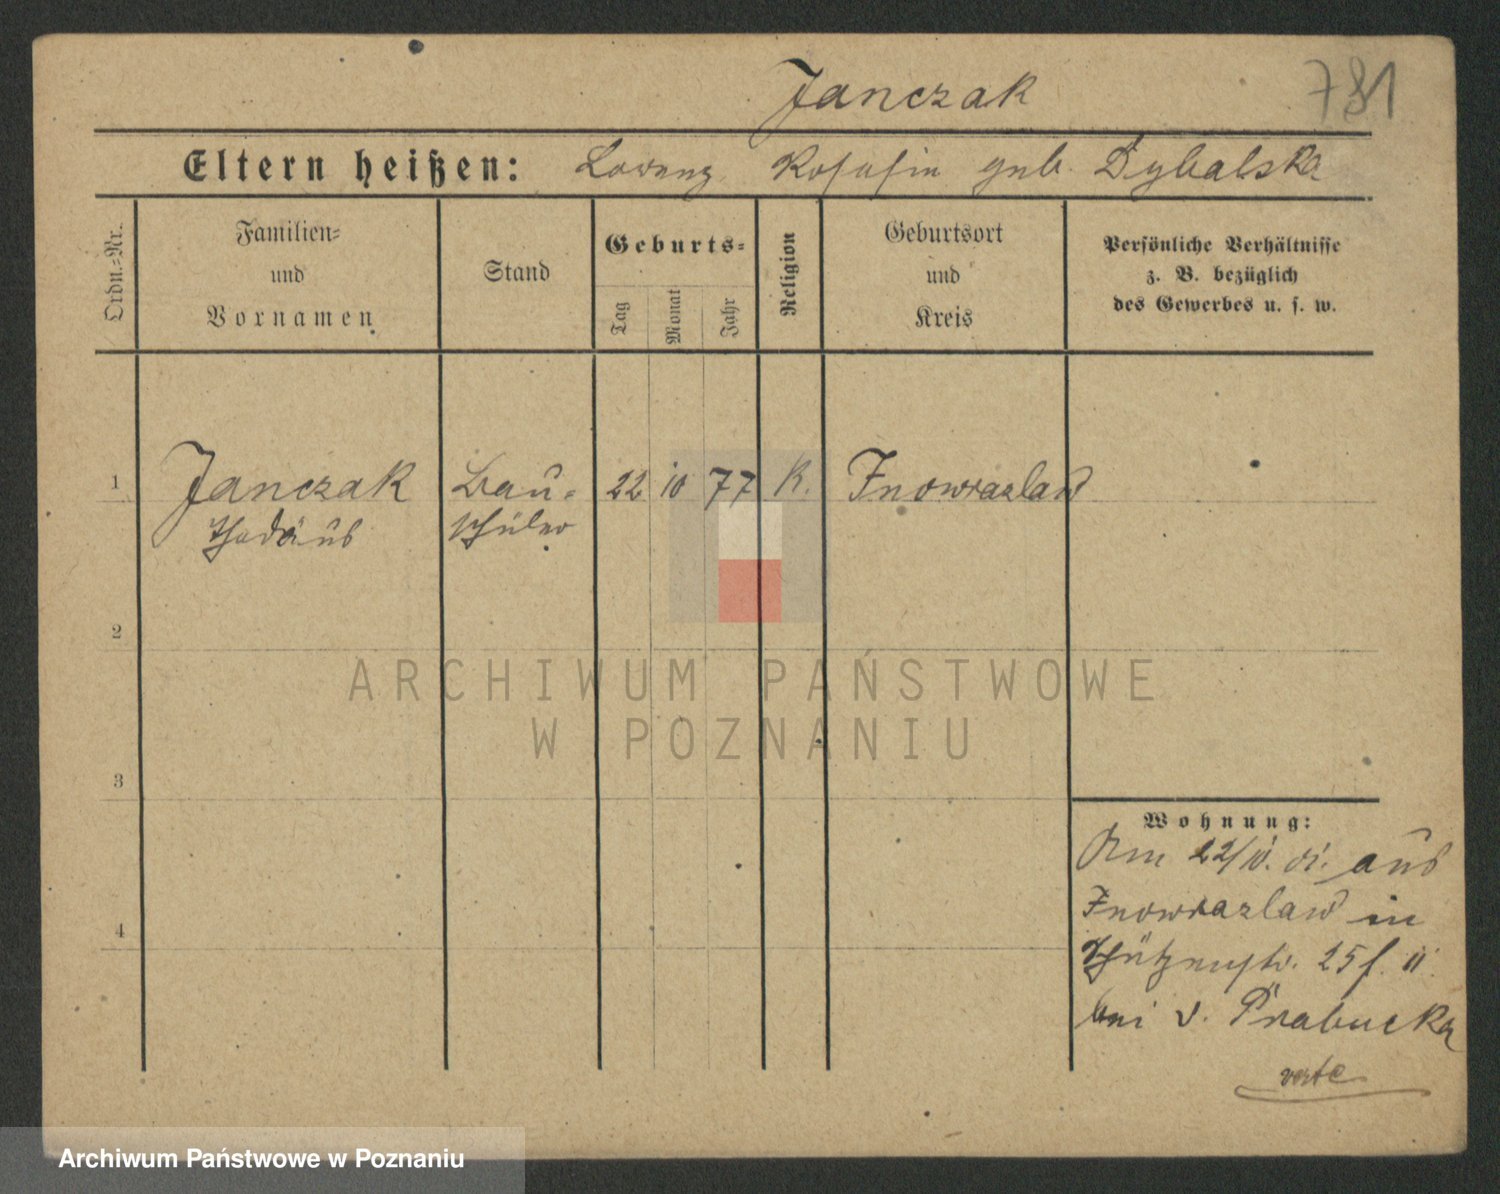 Janczak 781
Eltern heißen: Lorenz Josefin geb. Dybalska
Ordn.=Nr.
Familien=
und
Vornamen
Stand
Geburts=
Tag
Monat
Jahr
Religion
Geburtsort
und
Kreis
Persönliche Verhältnisse
z. B. bezüglich
des Gewerbes u. s. w.
1 Janczak Bau= 22 10 77 K. Inowrazlaw
Thadäus schüler
2
ARCHIWUM PAŃSTWOWE
W POZNANIU
3
Wohnung:
Am 22/10. aus
Inowrazlaw in
Schützenstr. 25 f. II.
bei v. Prabucka
verte
4
Archiwum Państwowe w Poznaniu